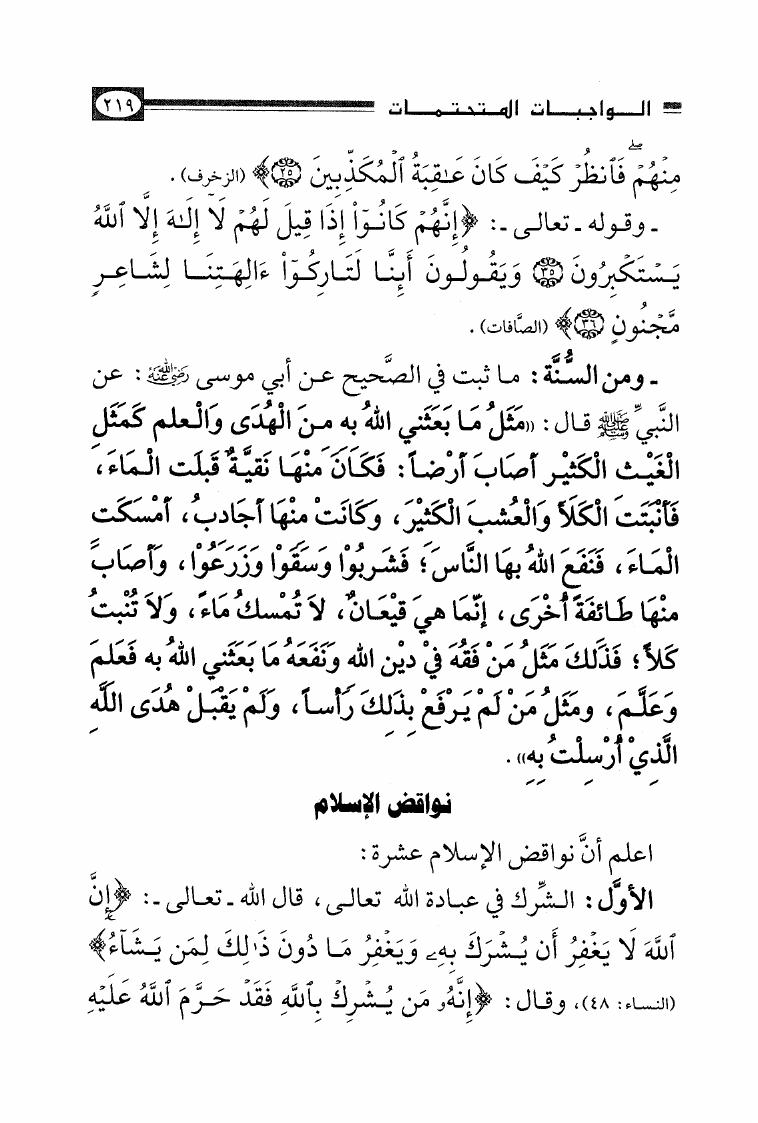 الـواجبـات المتحتمـات ٢١٩
مِنْهُمْ ۖ فَٱنظُرْ كَيْفَ كَانَ عَـٰقِبَةُ ٱلْمُكَذِّبِينَ ﴿٢٥﴾﴾ (الزخرف).
ـ وقوله ـ تعالى ـ: ﴿إِنَّهُمْ كَانُوٓا۟ إِذَا قِيلَ لَهُمْ لَآ إِلَـٰهَ إِلَّا ٱللَّهُ
يَسْتَكْبِرُونَ ﴿٣٥﴾ وَيَقُولُونَ أَئِنَّا لَتَارِكُوٓا۟ ءَالِهَتِنَا لِشَاعِرٍ
مَّجْنُونٍ ﴿٣٦﴾﴾ (الصَّافات).
ـ ومن السُّنَّة: ما ثبت في الصَّحيح عن أبي موسى رضي الله عنه: عن
النَّبيِّ ﷺ قال: «مَثَلُ مَا بَعَثَنِي اللهُ بِهِ مِنَ الْهُدَى وَالْعِلْمِ كَمَثَلِ
الْغَيْثِ الْكَثِيْرِ أَصَابَ أَرْضاً: فَكَانَ مِنْهَا نَقِيَّةٌ قَبِلَتِ الْمَاءَ،
فَأَنْبَتَتِ الْكَلَأَ وَالْعُشْبَ الْكَثِيْرَ، وَكَانَتْ مِنْهَا أَجَادِبُ، أَمْسَكَتِ
الْمَاءَ، فَنَفَعَ اللهُ بِهَا النَّاسَ؛ فَشَرِبُوْا وَسَقَوْا وَزَرَعُوْا، وَأَصَابَ
مِنْهَا طَائِفَةً أُخْرَى، إِنَّمَا هِيَ قِيْعَانٌ، لاَ تُمْسِكُ مَاءً، وَلاَ تُنْبِتُ
كَلَأً؛ فَذَلِكَ مَثَلُ مَنْ فَقُهَ فِيْ دِيْنِ اللهِ وَنَفَعَهُ مَا بَعَثَنِي اللهُ بِهِ فَعَلِمَ
وَعَلَّمَ، ومَثَلُ مَنْ لَمْ يَرْفَعْ بِذَلِكَ رَأْساً، وَلَمْ يَقْبَلْ هُدَى اللهِ
الَّذِيْ أُرْسِلْتُ بِهِ».
نواقض الإسلام
اعلم أنَّ نواقض الإسلام عشرة:
الأوَّل: الشِّرك في عبادة الله تعالى، قال الله ـ تعالى ـ: ﴿إِنَّ
ٱللَّهَ لَا يَغْفِرُ أَن يُشْرَكَ بِهِۦ وَيَغْفِرُ مَا دُونَ ذَٰلِكَ لِمَن يَشَآءُ﴾
(النساء: ٤٨)، وقال: ﴿إِنَّهُۥ مَن يُشْرِكْ بِٱللَّهِ فَقَدْ حَرَّمَ ٱللَّهُ عَلَيْهِ